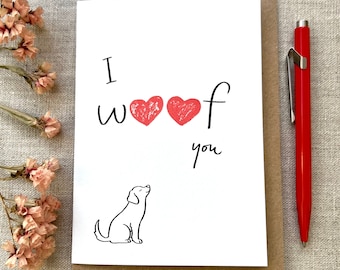 I
w❤❤f
you